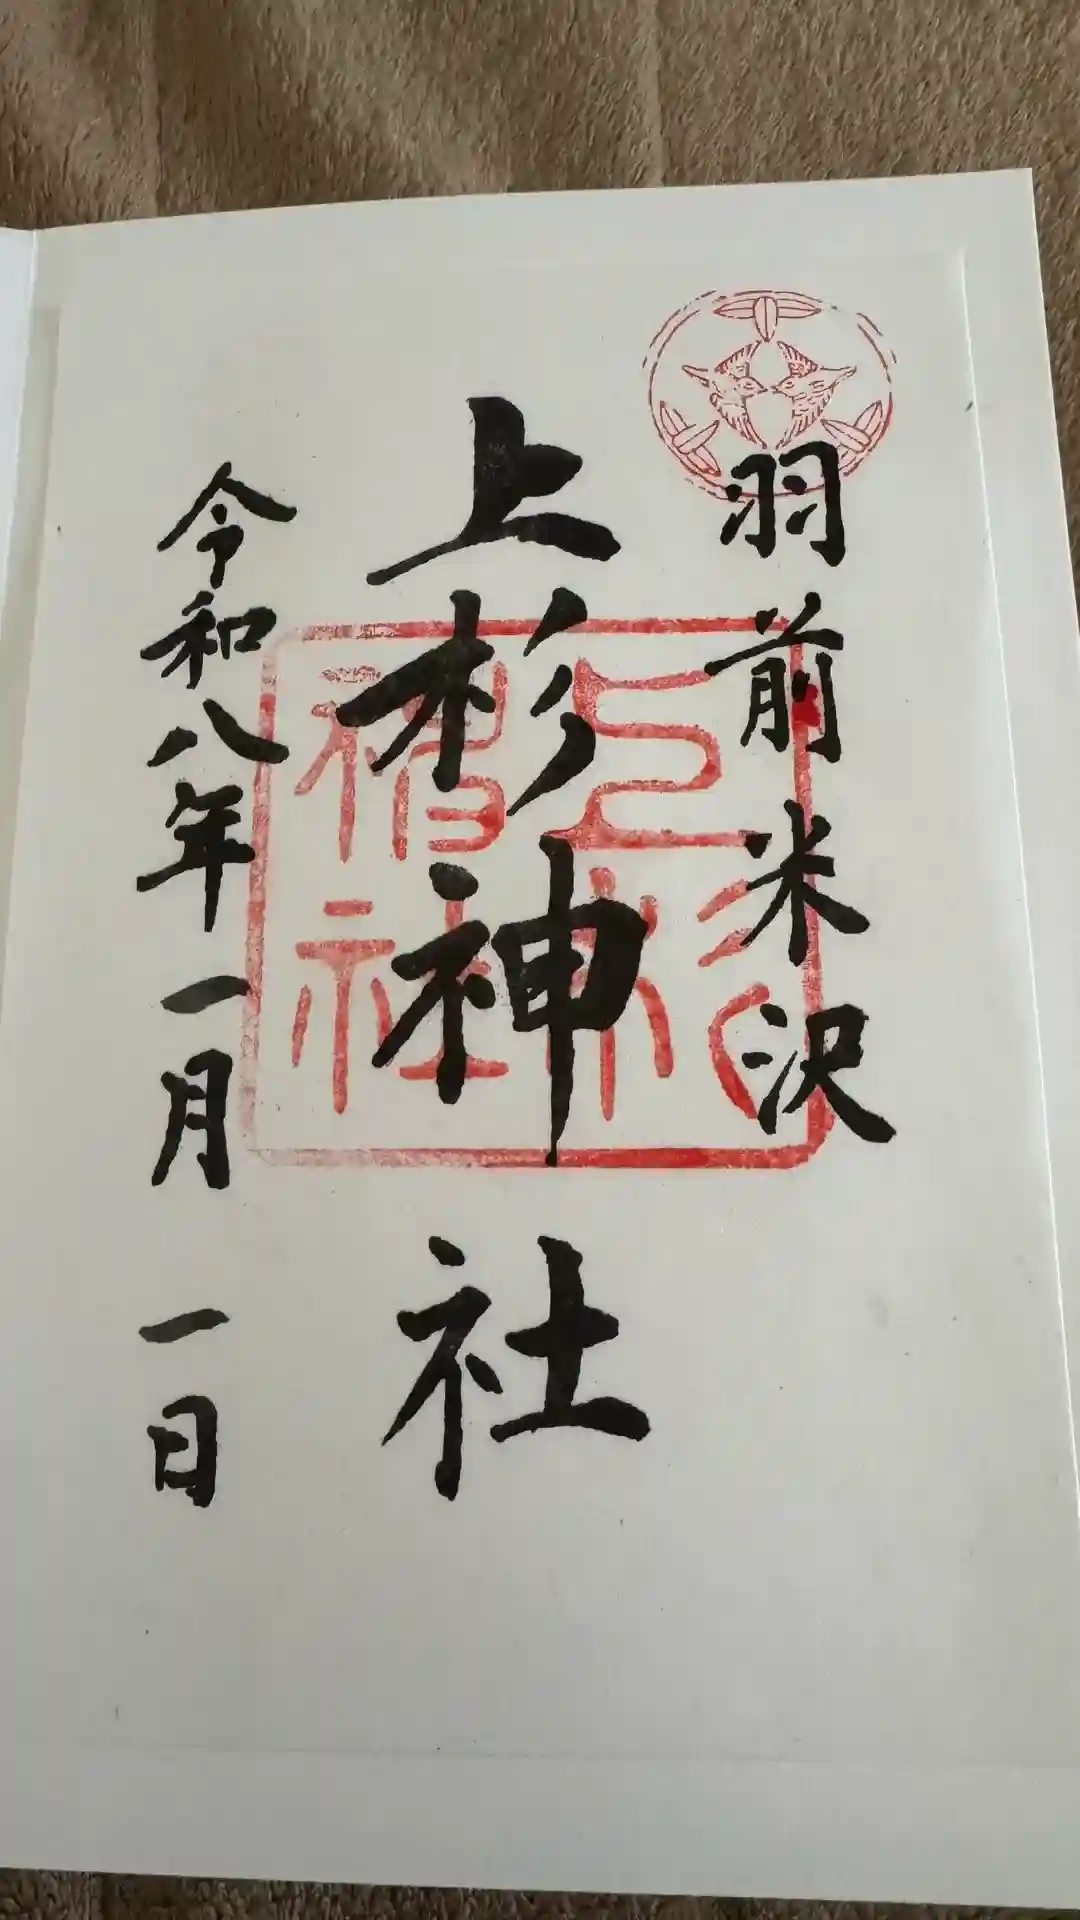 羽前米沢
上杉神社
令和八年一月一日
上杉
神社